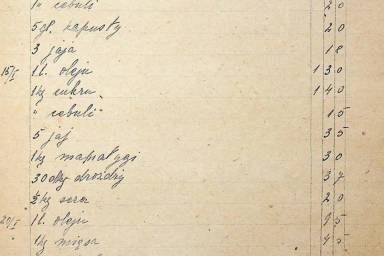 1 " cebuli 20
5 gł. kapusty 20
3 jaja 18
15/I 1 l. oleju 1 30
1 kg cukru 1 40
" cebuli 15
5 jaj 35
1 kg 30
30 dkg drożdży 37
½ kg sera 20
20/I 1 l. oleju 95
1 kg mięsa 45